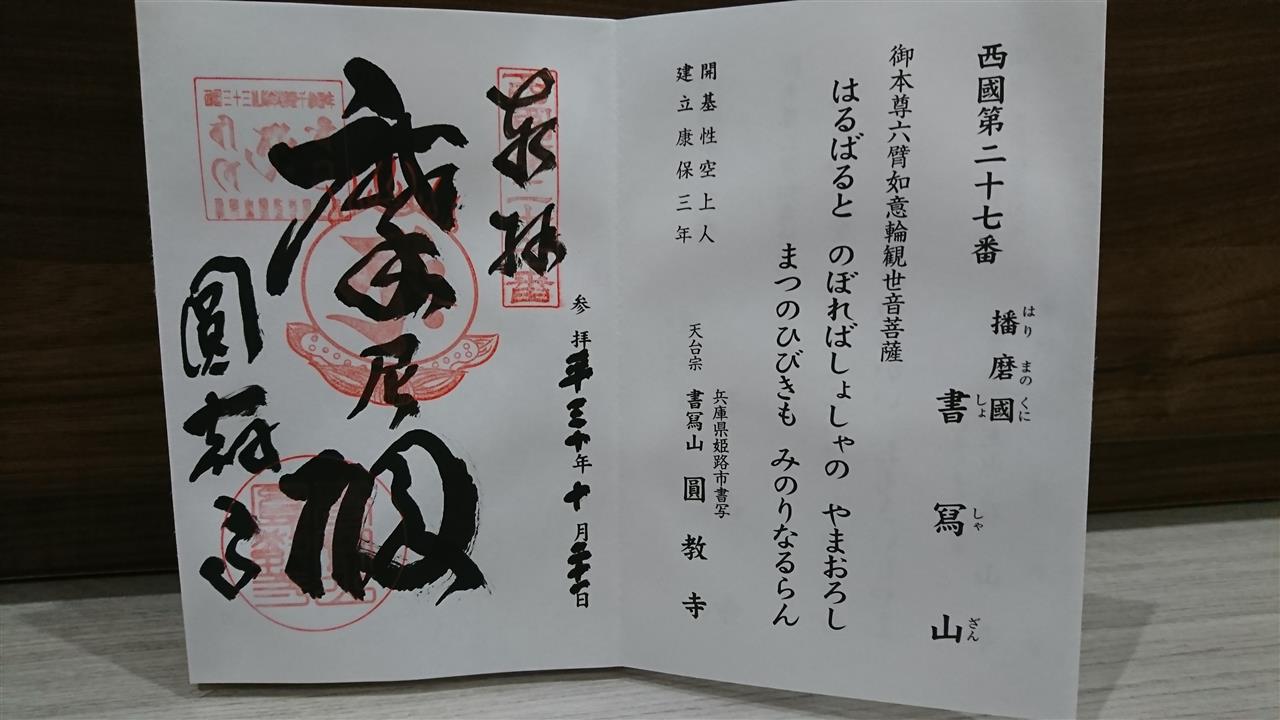 西國第二十七番
播磨國
はり まの くに
書寫山
しょ しゃ ざん
御本尊六臂如意輪観世音菩薩
はるばると のぼればしょしゃの やまおろし
まつのひびきも みのりなるらん
開基性空上人
建立康保三年
兵庫県姫路市書写
天台宗 書寫山 圓教寺
参拝平成三十年十月二十七日
奉拝
摩尼殿
圓教寺